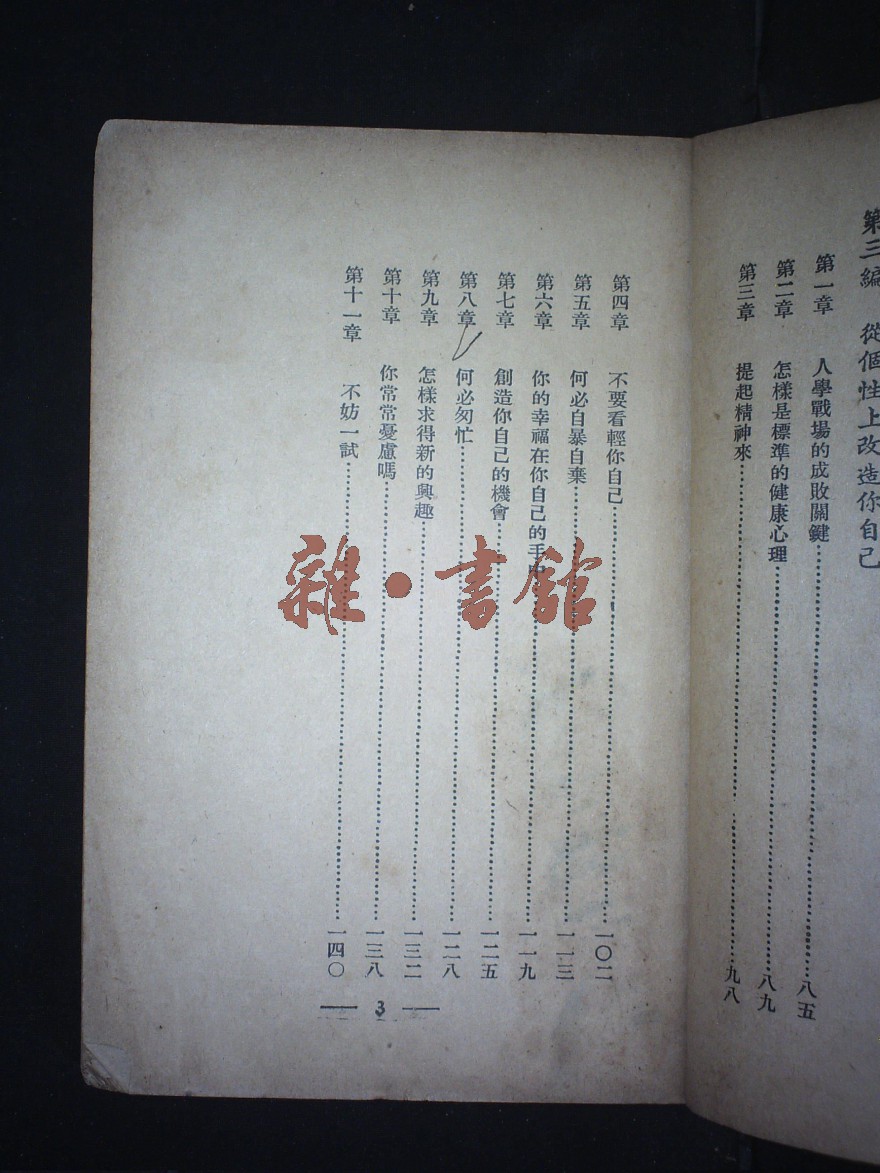 第三編 從個性上改造你自己
第一章 人學戰場的成敗關鍵……八五
第二章 怎樣是標準的健康心理……八九
第三章 提起精神來……九八
第四章 不要看輕你自己……一〇二
第五章 何必自暴自棄……一一三
第六章 你的幸福在你自己的手中……一一九
第七章 創造你自己的機會……一二五
第八章 何必匆忙……一二八
第九章 怎樣求得新的興趣……一三二
第十章 你常常憂慮嗎……一三八
第十一章 不妨一試……一四〇
3
雜·書館